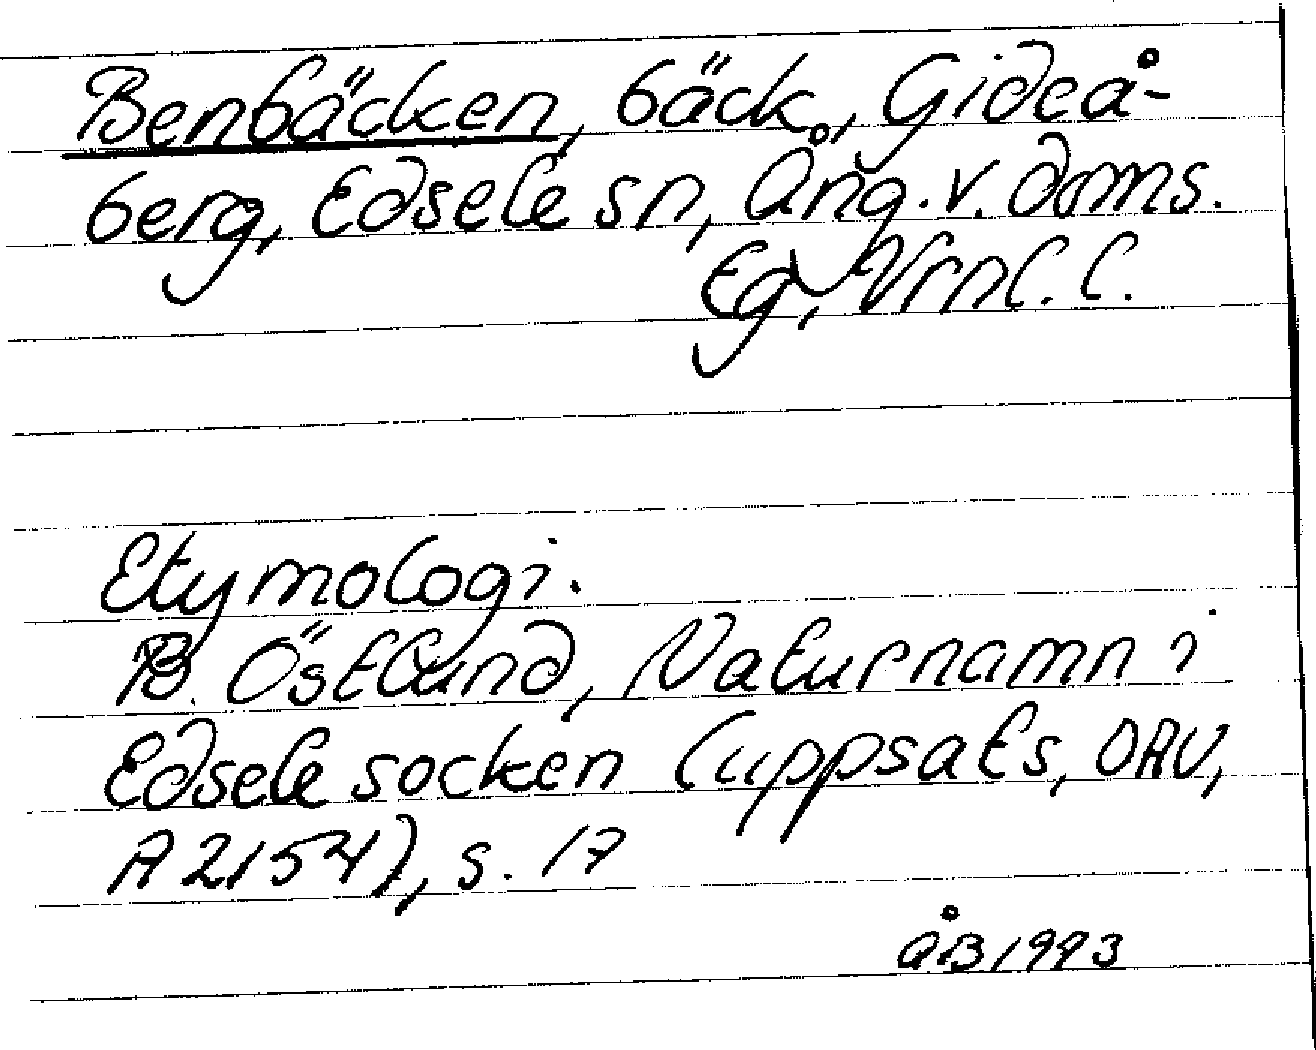 Benbäcken, bäck, Gideå-
berg, Edsele sn, Ång. v. doms.
Eg, Vrnl. l.
Etymologi.
B. Östlund, Naturnamn i
Edsele socken (uppsats, DAU,
A 2154), s. 17
ÅB 1993